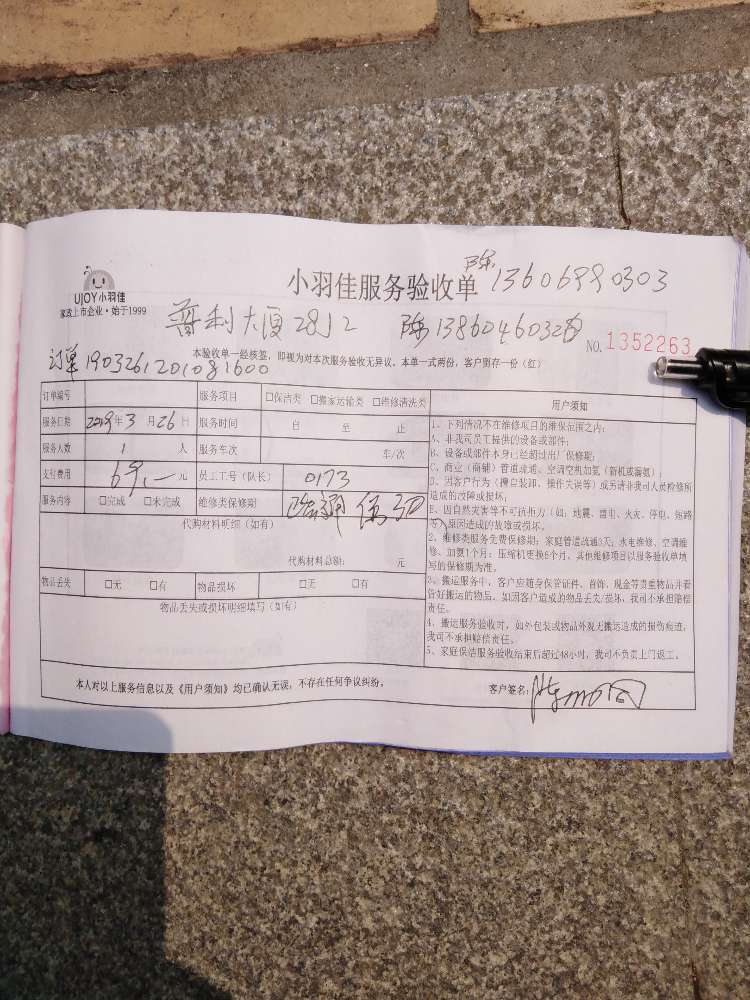 小羽佳服务验收单 陈13606990303
UJOY小羽佳
家政上市企业·始于1999
普利大厦28J2 陈13860460328
NO.1352263
订单1903261201081600
本验收单一经核签，即视为对本次服务验收无异议。本单一式两份，客户贸存一份（红）
订单编号 服务项目 □保洁类 □搬家运输类 □维修清洗类
服务日期 2019年3月26日 服务时间 自 至 止
服务人数 1 人 服务车次 车/次
支付费用 69.一元 员工工号（队长） 0173
服务内容 □完成 □未完成 维修类保修期
代购材料明细（如有）
代购材料总额： 元
物品丢失 □无 □有 物品损坏 □无 □有
物品丢失或损坏明细填写（如有）
用户须知
1、下列情况不在维修项目的维保范围之内：
A、非我司员工提供的设备或部件；
B、设备或部件本身已经超过出厂保修期；
C、商业（商铺）管道疏通、空调空机加氟（新机或漏氟）；
D、因客户行为（擅自装卸、操作失误等）或另请非我司人员检修所
造成的故障或损坏；
E、因自然灾害等不可抗拒力（如：地震、雷电、火灾、停电、短路
等）原因造成的故障或损坏。
2、维修类服务免费保修期：家庭管道疏通3天；水电维修、空调维
修、加氟1个月；压缩机更换6个月。其他维修项目以服务验收单填
写的保修期为准。
3、搬运服务中，客户应随身保管证件、首饰、现金等贵重物品并看
管好搬运的物品。如因客户造成的物品丢失/损坏，我司不承担赔偿
责任。
4、搬运服务验收时，如外包装或物品外观无搬运造成的损伤痕迹，
我司不承担赔偿责任。
5、家庭保洁服务验收结束后超过48小时，我司不负责上门返工。
本人对以上服务信息以及《用户须知》均已确认无误，不存在任何争议纠纷。 客户签名：